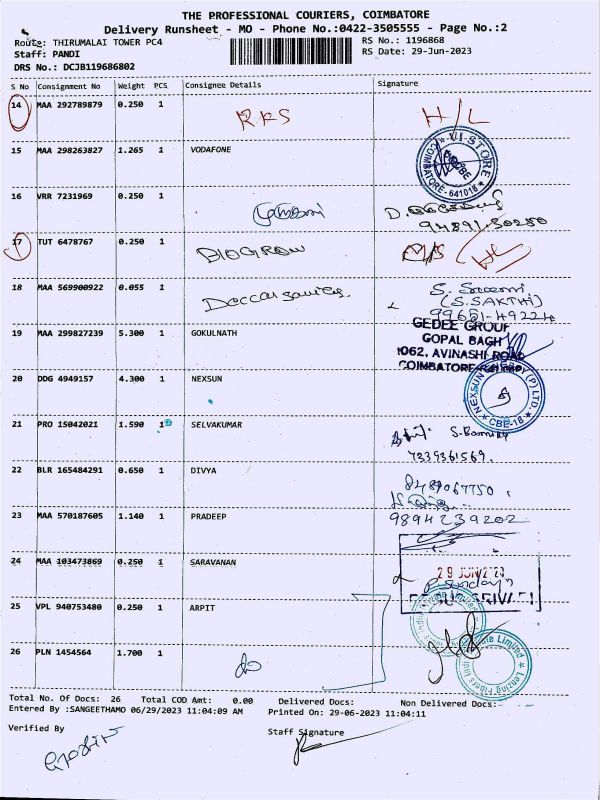 THE PROFESSIONAL COURIERS, COIMBATORE
Delivery Runsheet - MO - Phone No.:0422-3505555 - Page No.:2
Route: THIRUMALAI TOWER PC4 RS No.: 1196868
Staff: PANDI RS Date: 29-Jun-2023
DRS No.: DCJB119686802
S No Consignment No Weight PCS Consignee Details Signature
14 MAA 292789879 0.250 1 RKS H/L
15 MAA 298263827 1.265 1 VODAFONE VI-STORE COIMBATORE-641018
16 VRR 7231969 0.250 1 D. 94891-50250
17 TUT 6478767 0.250 1 BIOGROW
18 MAA 569900922 0.055 1 S.
(S.SAKTHI)
99651-49224
19 MAA 299827239 5.300 1 GOKULNATH GEDEE GROUP
GOPAL BAGH
1062, AVINASHI ROAD
COIMBATORE
20 DDG 4949157 4.300 1 NEXSUN NEXSUN (P) LTD CBE-18
21 PRO 15042021 1.590 1 SELVAKUMAR
7339361569.
22 BLR 165484291 0.650 1 DIVYA 8489067750
23 MAA 570187605 1.140 1 PRADEEP 9894239202
24 MAA 103473869 0.250 1 SARAVANAN 29 JUN 2023
25 VPL 940753480 0.250 1 ARPIT
26 PLN 1454564 1.700 1 do Lenzing Fibers Limited
Total No. Of Docs: 26 Total COD Amt: 0.00 Delivered Docs: Non Delivered Docs:
Entered By :SANGEETHAMO 06/29/2023 11:04:09 AM Printed On: 29-06-2023 11:04:11
Verified By Staff Signature